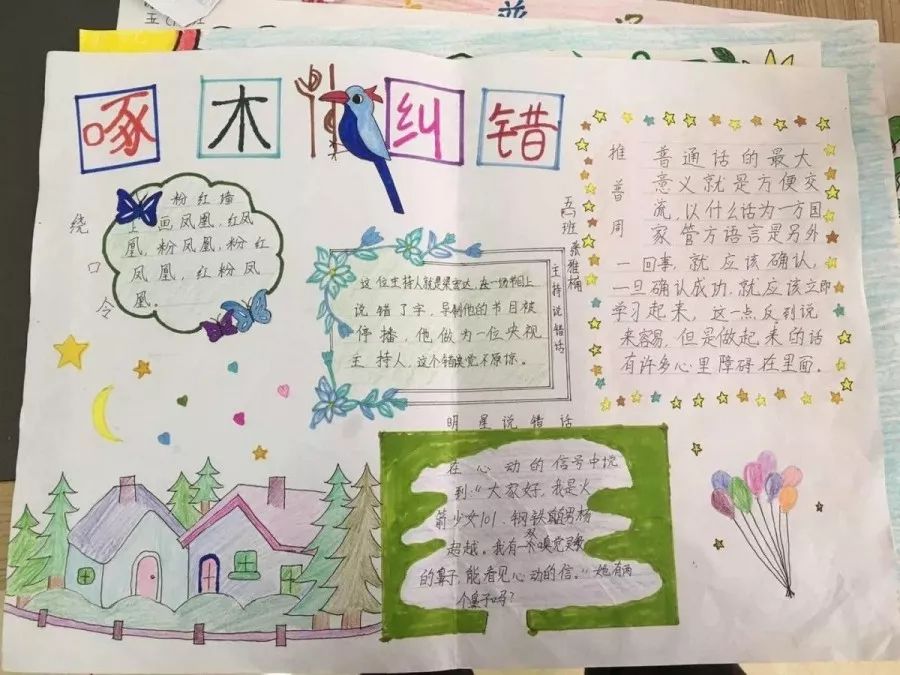 啄 木 纠 错
绕口令
粉红墙
上画凤凰，红凤
凰，粉凤凰，粉红
凤凰，红粉凤
凰。
五班 张雅楠
主持说错话
这位主持人就是梁宏达，在一场节目上
说错了字，导制他的节目被
停播，他做为一位央视
主持人，这个错误觉不原惊。
推普周
普通话的最大
意义就是方便交
流，以什么话为一方国
家管方语言是另外
一回事，就应该确认，
一旦确认成功，就应该立即
学习起来，这一点反列说
来容易，但是做起来的话
有许多心里障碍在里面。
明星说错话
在心动的信号中说
到：“大家好，我是火
箭少女101、钢铁直男杨
超越。我有一双嗅觉灵敏
的鼻子，能看见心动的信。”她有两
个鼻子吗？